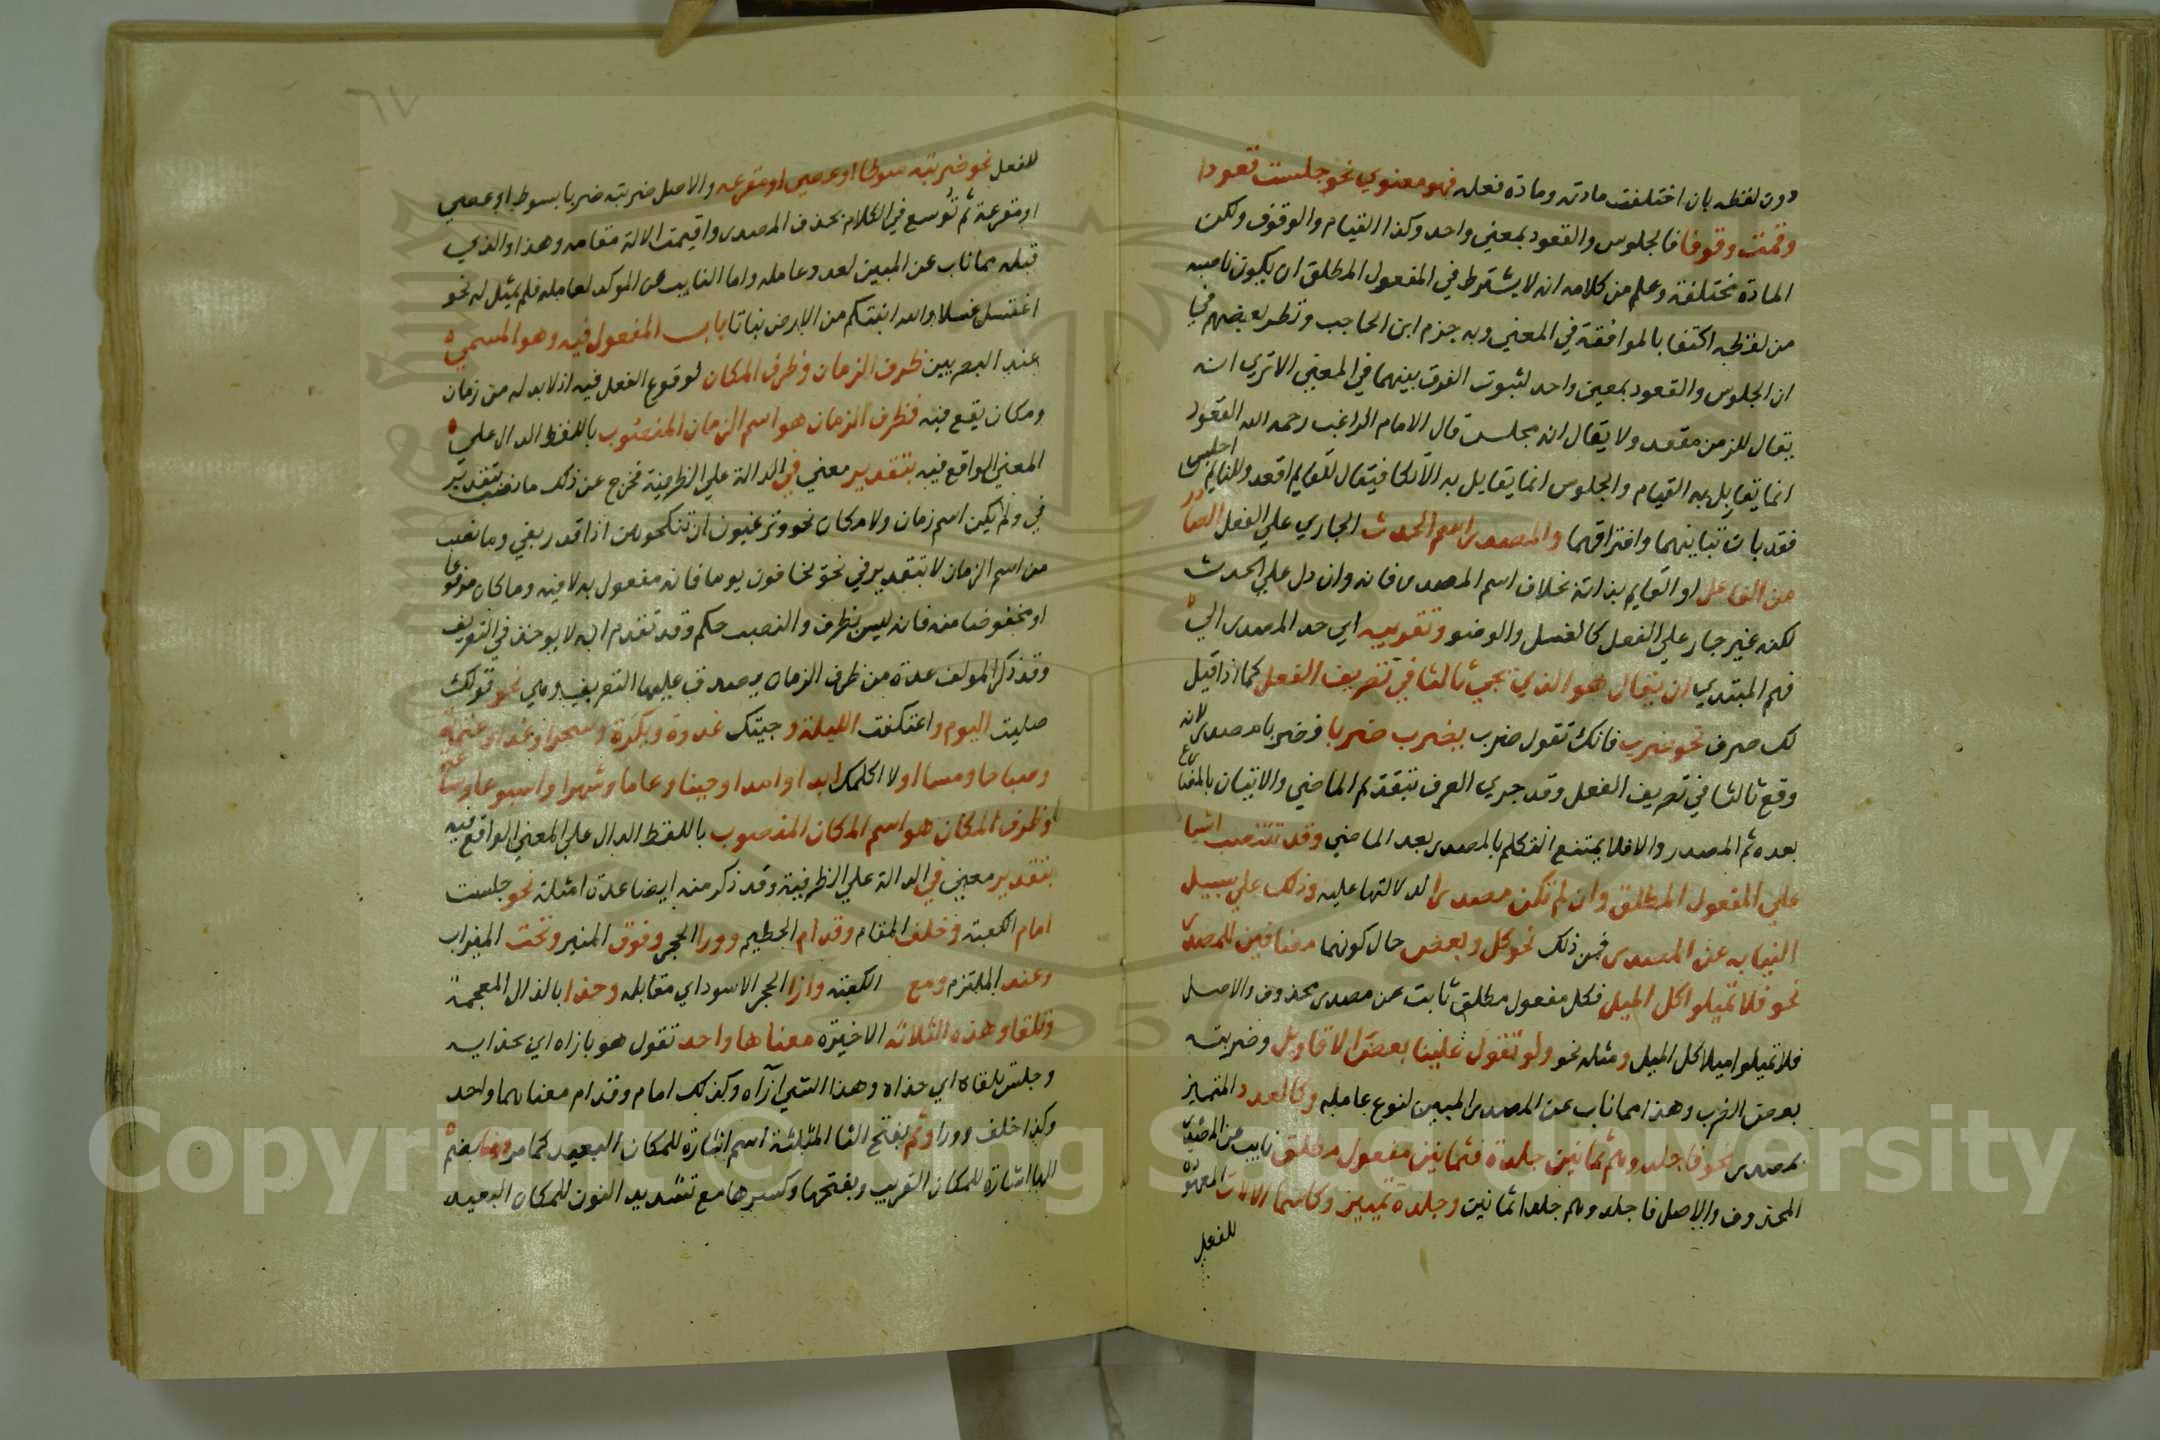 دون لفظه بان اختلفت مادته ومادة فعله فهو معنوي نحو جلست قعودا
وقمت وقوفا فالجلوس والقعود بمعني واحد وكذا القيام والوقوف ولكن
المادة مختلفة وعلم من كلامه انه لا يشترط في المفعول المطلق ان يكون ناصبه
من لفظه اكتفا بالموافقة في المعني وبه جزم ابن الحاجب ونظر بعضهم في
ان الجلوس والقعود بمعني واحد لثبوت الفرق بينهما في المعني الا تري انه
يقال للزمن مقعد ولا يقال انه مجلس قال الامام الراغب رحمه الله القعود
انما يقابل به القيام والجلوس انما يقابل به الاتكا فيقال للقايم اقعد وللنايم اجلس
فقد بان تباينهما وافتراقهما والمصدر اسم الحدث الجاري علي الفعل الصادر
من الفاعل او القايم بذاته بخلاف اسم المصدر فانه وان دل علي الحدث
لكنه غير جار علي الفعل كالغسل والوضو وتقريبه اي حد المصدر الي
فهم المبتدي ان يقال هو الذي يجي ثالثا في تصريف الفعل كما اذا قيل
لك صرف نحو ضرب فانك تقول ضرب يضرب ضربا فضربا مصدر لانه
وقع ثالثا في تصريف الفعل وقد جري العرف بتقديم الماضي والاتيان بالمضارع
بعده ثم المصدر والا فلا يمتنع التكلم بالمصدر بعد الماضي وقد تنتصب اشيا
علي المفعول المطلق وان لم تكن مصدرا لدلالتها عليه وذلك علي سبيل
النيابه عن المصدر فمن ذلك نحو كل وبعض حال كونهما مضافين للمصدر
نحو فلا تميلوا كل الميل فكل مفعول مطلق ثابت عن مصدر محذوف والاصل
فلا تميلوا ميلا كل الميل ومثله نحو ولو تقول علينا بعض الاقاويل وضربته
بعض الضرب وهذا مما ناب عن المصدر المبين لنوع عامله وكالعدد المتميز
بمصدر نحو فاجلدوهم ثمانين جلدة فثمانين مفعول مطلق نايب عن المصدر
المحذوف والاصل فاجلدوهم جلدا ثمانين وجلدة تمييز وكاسما الالات المعهودة
للفعل
للفعل نحو ضربته سوطا او عصي او مقرعه والاصل ضربته ضربا بسوط او عصي
او مقرعة ثم توسع في الكلام بحذف المصدر واقيمت الالة مقامه وهذا والذي
قبله مما ناب عن المبين لعدد عامله واما النايب عن الموكد لعامله فلم يمثل له نحو
اغتسل غسلا والله انبتكم من الارض نباتا باب المفعول فيه وهو المسمي
عند البصريين ظرف الزمان وظرف المكان لوقوع الفعل فيه اذ لا بد له من زمان
ومكان يقع فيه فظرف الزمان هو اسم الزمان المنصوب باللفظ الدال علي
المعني الواقع فيه بتقدير معني في الدالة علي الظرفية فخرج عن ذلك ما نصب بتقدير
في ولم يكن اسم زمان ولا مكان نحو وترغبون ان تنكحوهن اذا قدر بفي وما نصب
من اسم الزمان لا بتقدير في نحو يخافون يوما فانه مفعول به لا فيه وما كان مرفوعا
او مخفوضا منه فانه ليس بظرف والنصب حكم وقد تقدم انه لا يوخذ في التعريف
وقد ذكر المولف عدة من ظرف الزمان يصدق عليها التعريف وهي نحو قولك
صليت اليوم واعتكفت الليلة وجيتك غدوة وبكرة وسحرا وغدا وعتمة
وصباحا ومسا او لا اكلمك ابدا وامدا وحينا وعاما وشهرا واسبوعا وساعة
وظرف المكان هو اسم المكان المنصوب باللفظ الدال علي المعني الواقع فيه
بتقدير معني في الدالة علي الظرفية وقد ذكر منه ايضا عدة امثلة نحو جلست
امام الكعبة وخلف المقام وقدام الحطيم وورا الحجر وفوق المنبر وتحت الميزاب
وعند الملتزم ومع الكعبة وازا الحجر الاسود اي مقابله وحذا بالذال المعجمة
وتلقا وهذه الثلاثة الاخيرة معناها واحد تقول هو بازاه اي بحذايه
وجلس تلقاه اي حذاه وهذا الشي ازآه وكذلك امام وقدام معناهما واحد
وكذا خلف وورا وثم بفتح الثا المثلثة اسم اشارة للمكان البعيد كما مر وهنا بضم
الها اشارة للمكان القريب وبفتحها وكسرها مع تشديد النون للمكان البعيد
Copyright © King Saud University